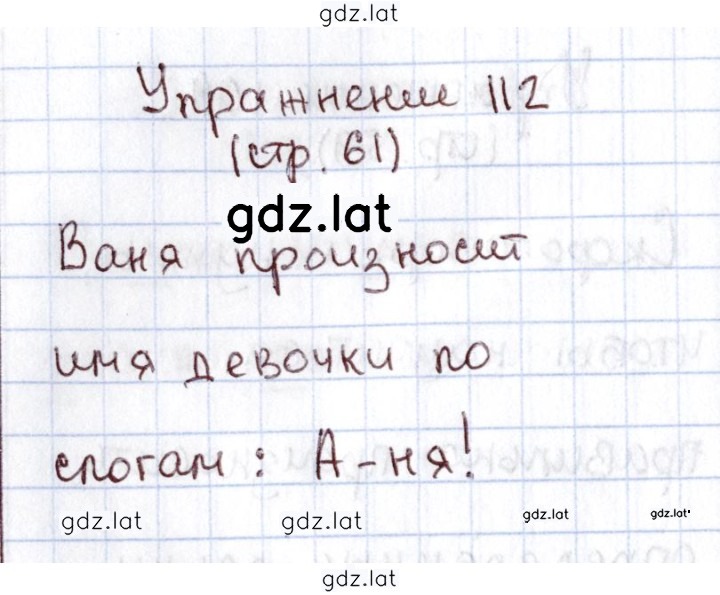 gdz.lat
Упражнение 112
(стр. 61)
gdz.lat
Ваня произносит
имя девочки по
слогам: А-ня!
gdz.lat gdz.lat gdz.lat gdz.lat
gdz.lat